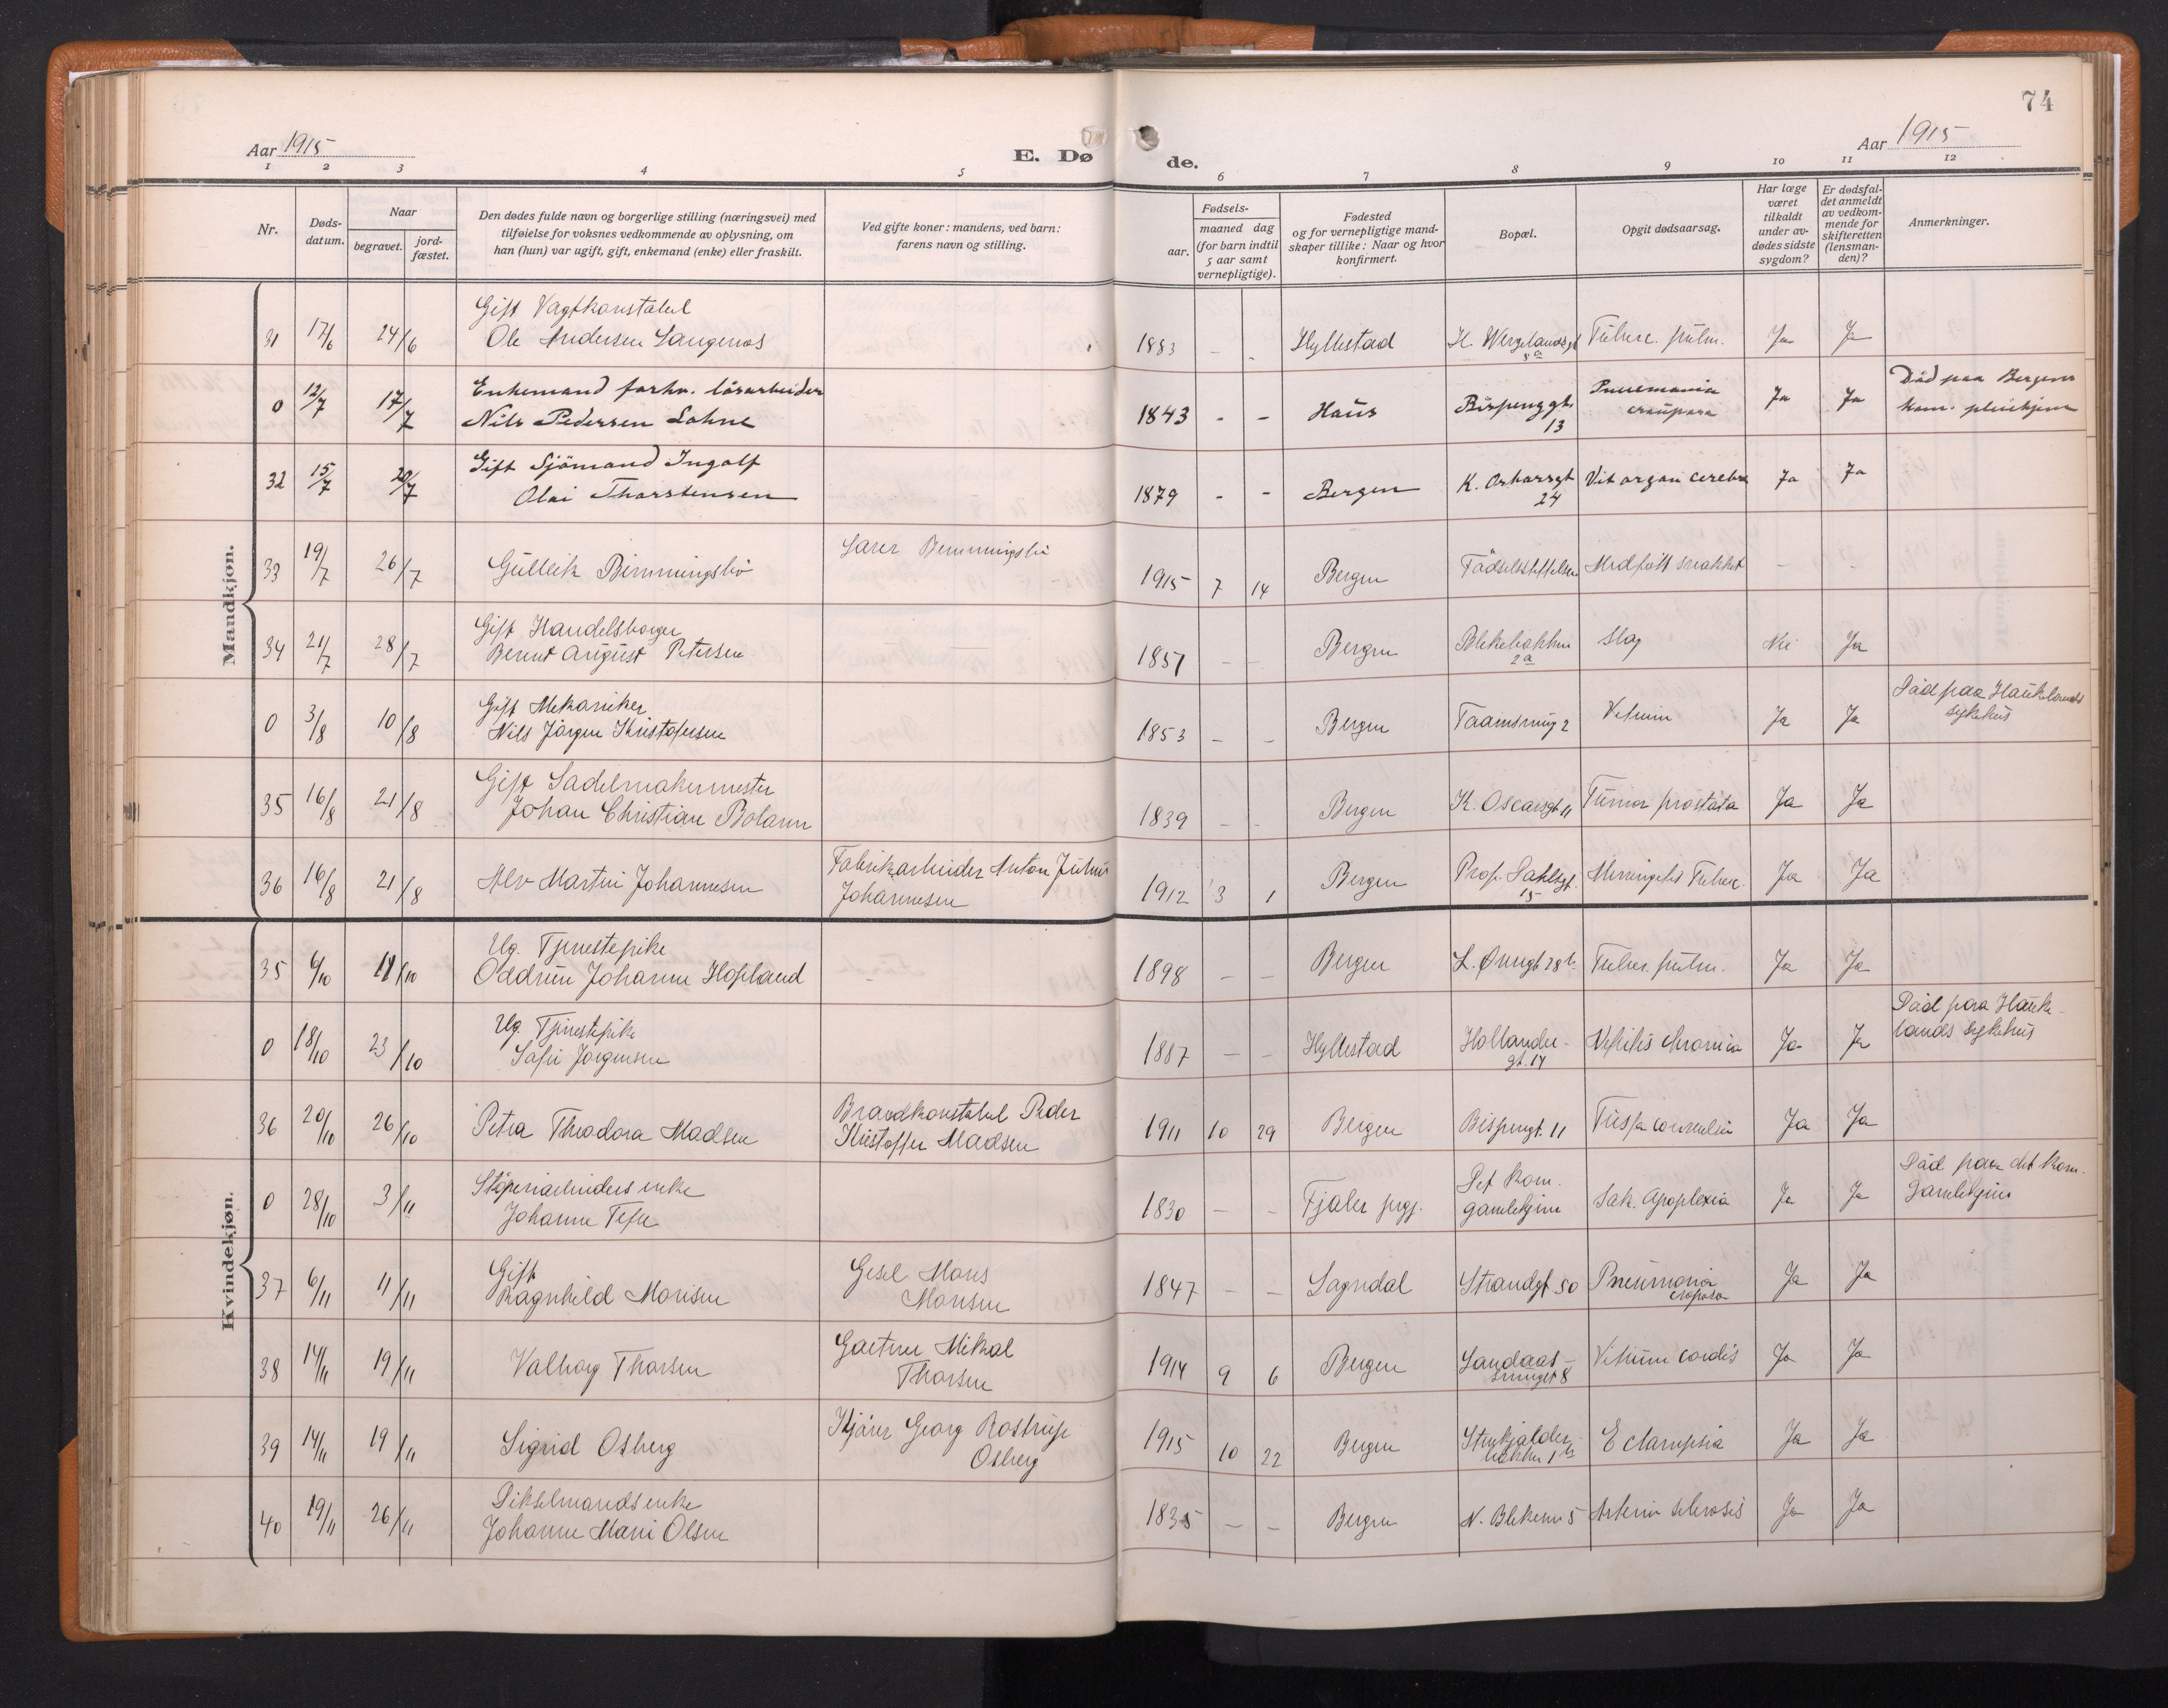 74
Aar 1915
E. Dø
de.
Aar 1915
1 2 3 4 5 6 7 8 9 10 11 12
Nr.
Døds-
datum.
Naar
begravet.
jord-
fæstet.
Den dødes fulde navn og borgerlige stilling (næringsvei) med
tilføielse for voksnes vedkommende av oplysning, om
han (hun) var ugift, gift, enkemand (enke) eller fraskilt.
Ved gifte koner: mandens, ved barn:
farens navn og stilling.
Fødsels-
aar.
maaned dag
(for barn indtil
5 aar samt
vernepligtige).
Fødested
og for vernepligtige mand-
skaper tillike: Naar og hvor
konfirmert.
Bopæl.
Opgit dødsaarsag.
Har læge
været
tilkaldt
under av-
dødes sidste
sygdom?
Er dødsfal-
det anmeldt
av vedkom-
mende for
skifteretten
(lensman-
den)?
Anmerkninger.
Mandkjøn.
Gift Vagtkonstabel
31 17/6 24/6 Ole Andersen 1883 - - Hyllestad H. Wergelandsgt Tuberc. pulm. Ja Ja
8a
Enkemand forhv. løsarbeider Død paa Bergens
0 12/7 17/7 Nils Pedersen Lohne 1843 - - Haus Bispenggt. 13 Pneumonia croupøsa Ja Ja kom. pleiehjem
Gift Sjømand Ingolf
32 15/7 20/7 Olai Thorstensen 1879 - - Bergen K. Oskarsgt 24 Vit organ cerebri Ja Ja
33 19/7 26/7 Gulleik 1915 7 14 Bergen Fødselsstiftelsen Medfødt svakhet - -
Gift Handelsborger
34 21/7 28/7 Bernt August Petersen 1857 - - Bergen Blekebakken 2a Slag Nei Ja
Gift Mekaniker Død paa Hauklands
0 3/8 10/8 Nils Jørgen Kristofersen 1853 - - Bergen 2 Vitium Ja Ja sykehus
Gift Sadelmakermester
35 16/8 21/8 Johan Christian Bolann 1839 - - Bergen K. Oscarsgt 11 Tumor prostata Ja Ja
Fabrikarbeider Anton Julius
36 16/8 21/8 Alv Martin Johannesen Johannesen 1912 3 1 Bergen Prof. Dahlsgt. 15 Meningitis Tuberc. Ja Ja
Kvindekjøn.
Ug. Tjenestepike
35 6/10 11/10 Oddrun Johanne Hopland - 1898 - - Bergen L. Øvregt 28b. Tuberc. pulm. Ja Ja
Ug. Tjenestepike Død paa Hauk-
0 18/10 23/10 Sofie Jørgensen 1887 - - Hyllestad Hollander-gt. 17 Nefritis chronica Ja Ja lands sykehus
Brandkonstabel Peder
36 20/10 26/10 Petra Theodora Madsen Kristoffer Madsen 1911 10 29 Bergen Bispengt. 11 Tussis convulsiv Ja Ja
Støperiarbeiders enke Det kom. Død paa det kom.
0 28/10 3/11 Johanne 1830 - - Fjaler prgj. gamlehjem Sak. Apoplexia Ja Ja Gamlehjem
Gift Gesel Mons
37 6/11 11/11 Ragnhild Monsen Monsen 1847 - - Sogndal Strandgt 50 Pneumonia croposa Ja Ja
Gartner Mikal
38 14/11 19/11 Valborg Thorsen Thorsen 1914 9 6 Bergen Landaas-svinget 8 Vitium cordis Ja Ja
Kjører Georg Rostrup
39 14/11 19/11 Sigrid Osberg Osberg 1915 10 22 Bergen Steinkjelder-bakken 1b Eclampsia Ja Ja
Dikselmands enke
40 19/11 26/11 Johanne Marie Olsen 1835 - - Bergen N. Blekevei 5 Arterio sclerosis Ja Ja